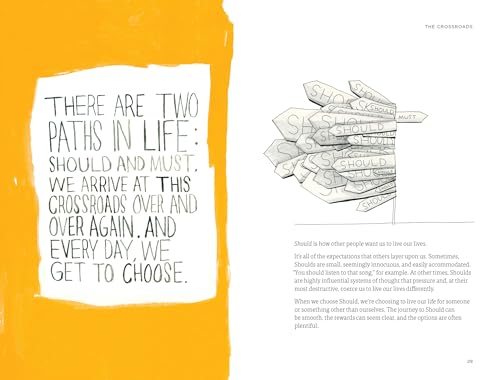 THERE ARE TWO
PATHS IN LIFE:
SHOULD AND MUST.
WE ARRIVE AT THIS
CROSSROADS OVER AND
OVER AGAIN. AND
EVERY DAY, WE
GET TO CHOOSE.
THE CROSSROADS
SHOULD
SHOULD
SHOULD
MUST
SHOULD
SHOULD
SHOULD
SHOULD
Should is how other people want us to live our lives.
It's all of the expectations that others layer upon us. Sometimes,
Shoulds are small, seemingly innocuous, and easily accommodated.
"You should listen to that song," for example. At other times, Shoulds
are highly influential systems of thought that pressure and, at their
most destructive, coerce us to live our lives differently.
When we choose Should, we're choosing to live our life for someone
or something other than ourselves. The journey to Should can
be smooth, the rewards can seem clear, and the options are often
plentiful.